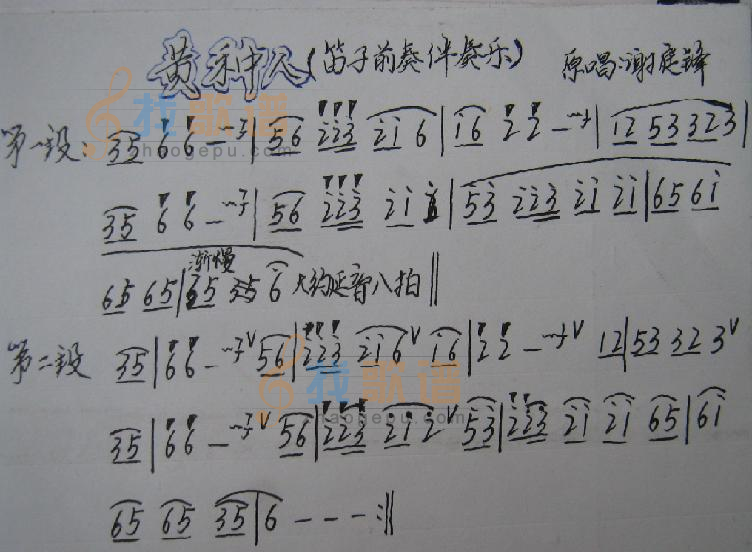 黄种人(笛子前奏伴奏乐) 原唱:谢庭锋
第一段: 35 66 — | 56 223 216 | 16 22 — | 12 53 323 |
35 66 — | 56 223 21 | 53 223 21 21 | 65 61
渐慢
65 65 | 35 35 6 大约延音八拍 ||
第二段 35 | 66 — v 56 | 223 216 v 16 | 22 — v 12 | 53 32 3 v
35 | 66 — v 56 | 223 212 v 53 | 223 21 21 65 | 61
65 65 35 | 6 - - - :||
找歌谱
zhaogepu.com